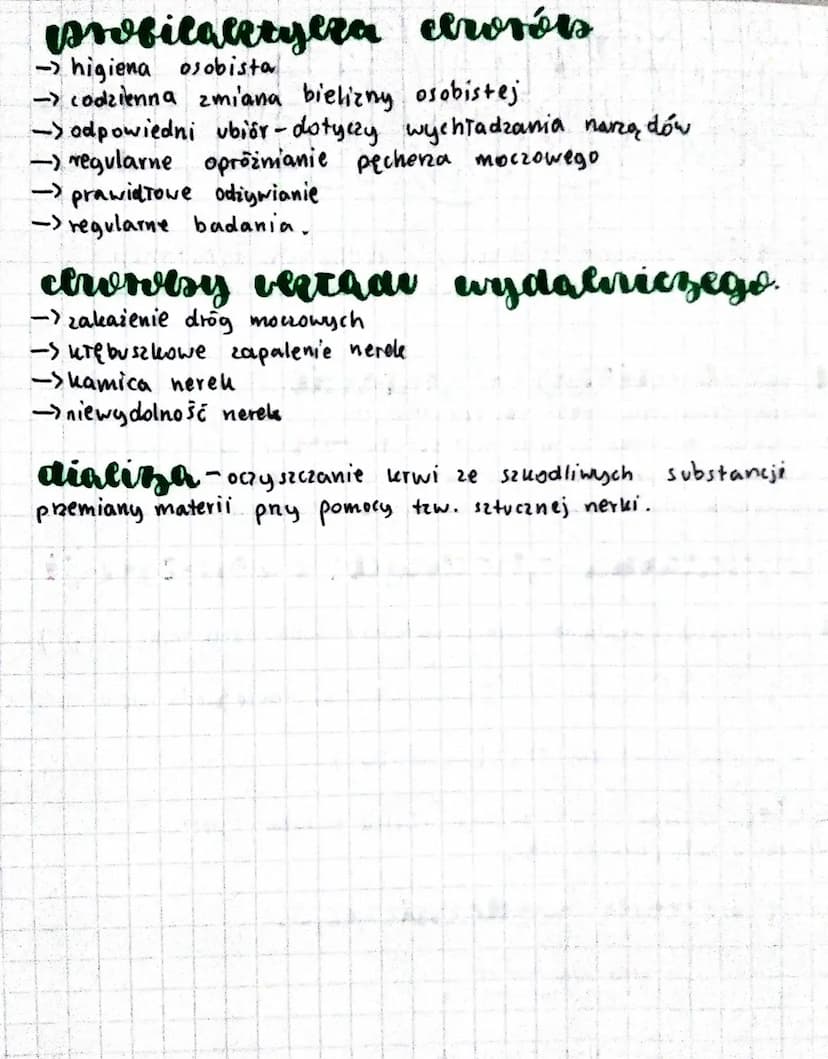 profilaktyka chorób
→ higiena osobista
→ codzienna zmiana bielizny osobistej
→ odpowiedni ubiór - dotyczy wychładzania narządów
→ regularne opróżnianie pęcherza moczowego
→ prawidłowe odżywianie
→ regularne badania.
choroby układu wydalniczego.
→ zakażenie dróg moczowych
→ kłębuszkowe zapalenie nerek
→ kamica nerek
→ niewydolność nerek
dializa - oczyszczanie krwi ze szkodliwych substancji
przemiany materii przy pomocy tzw. sztucznej nerki.